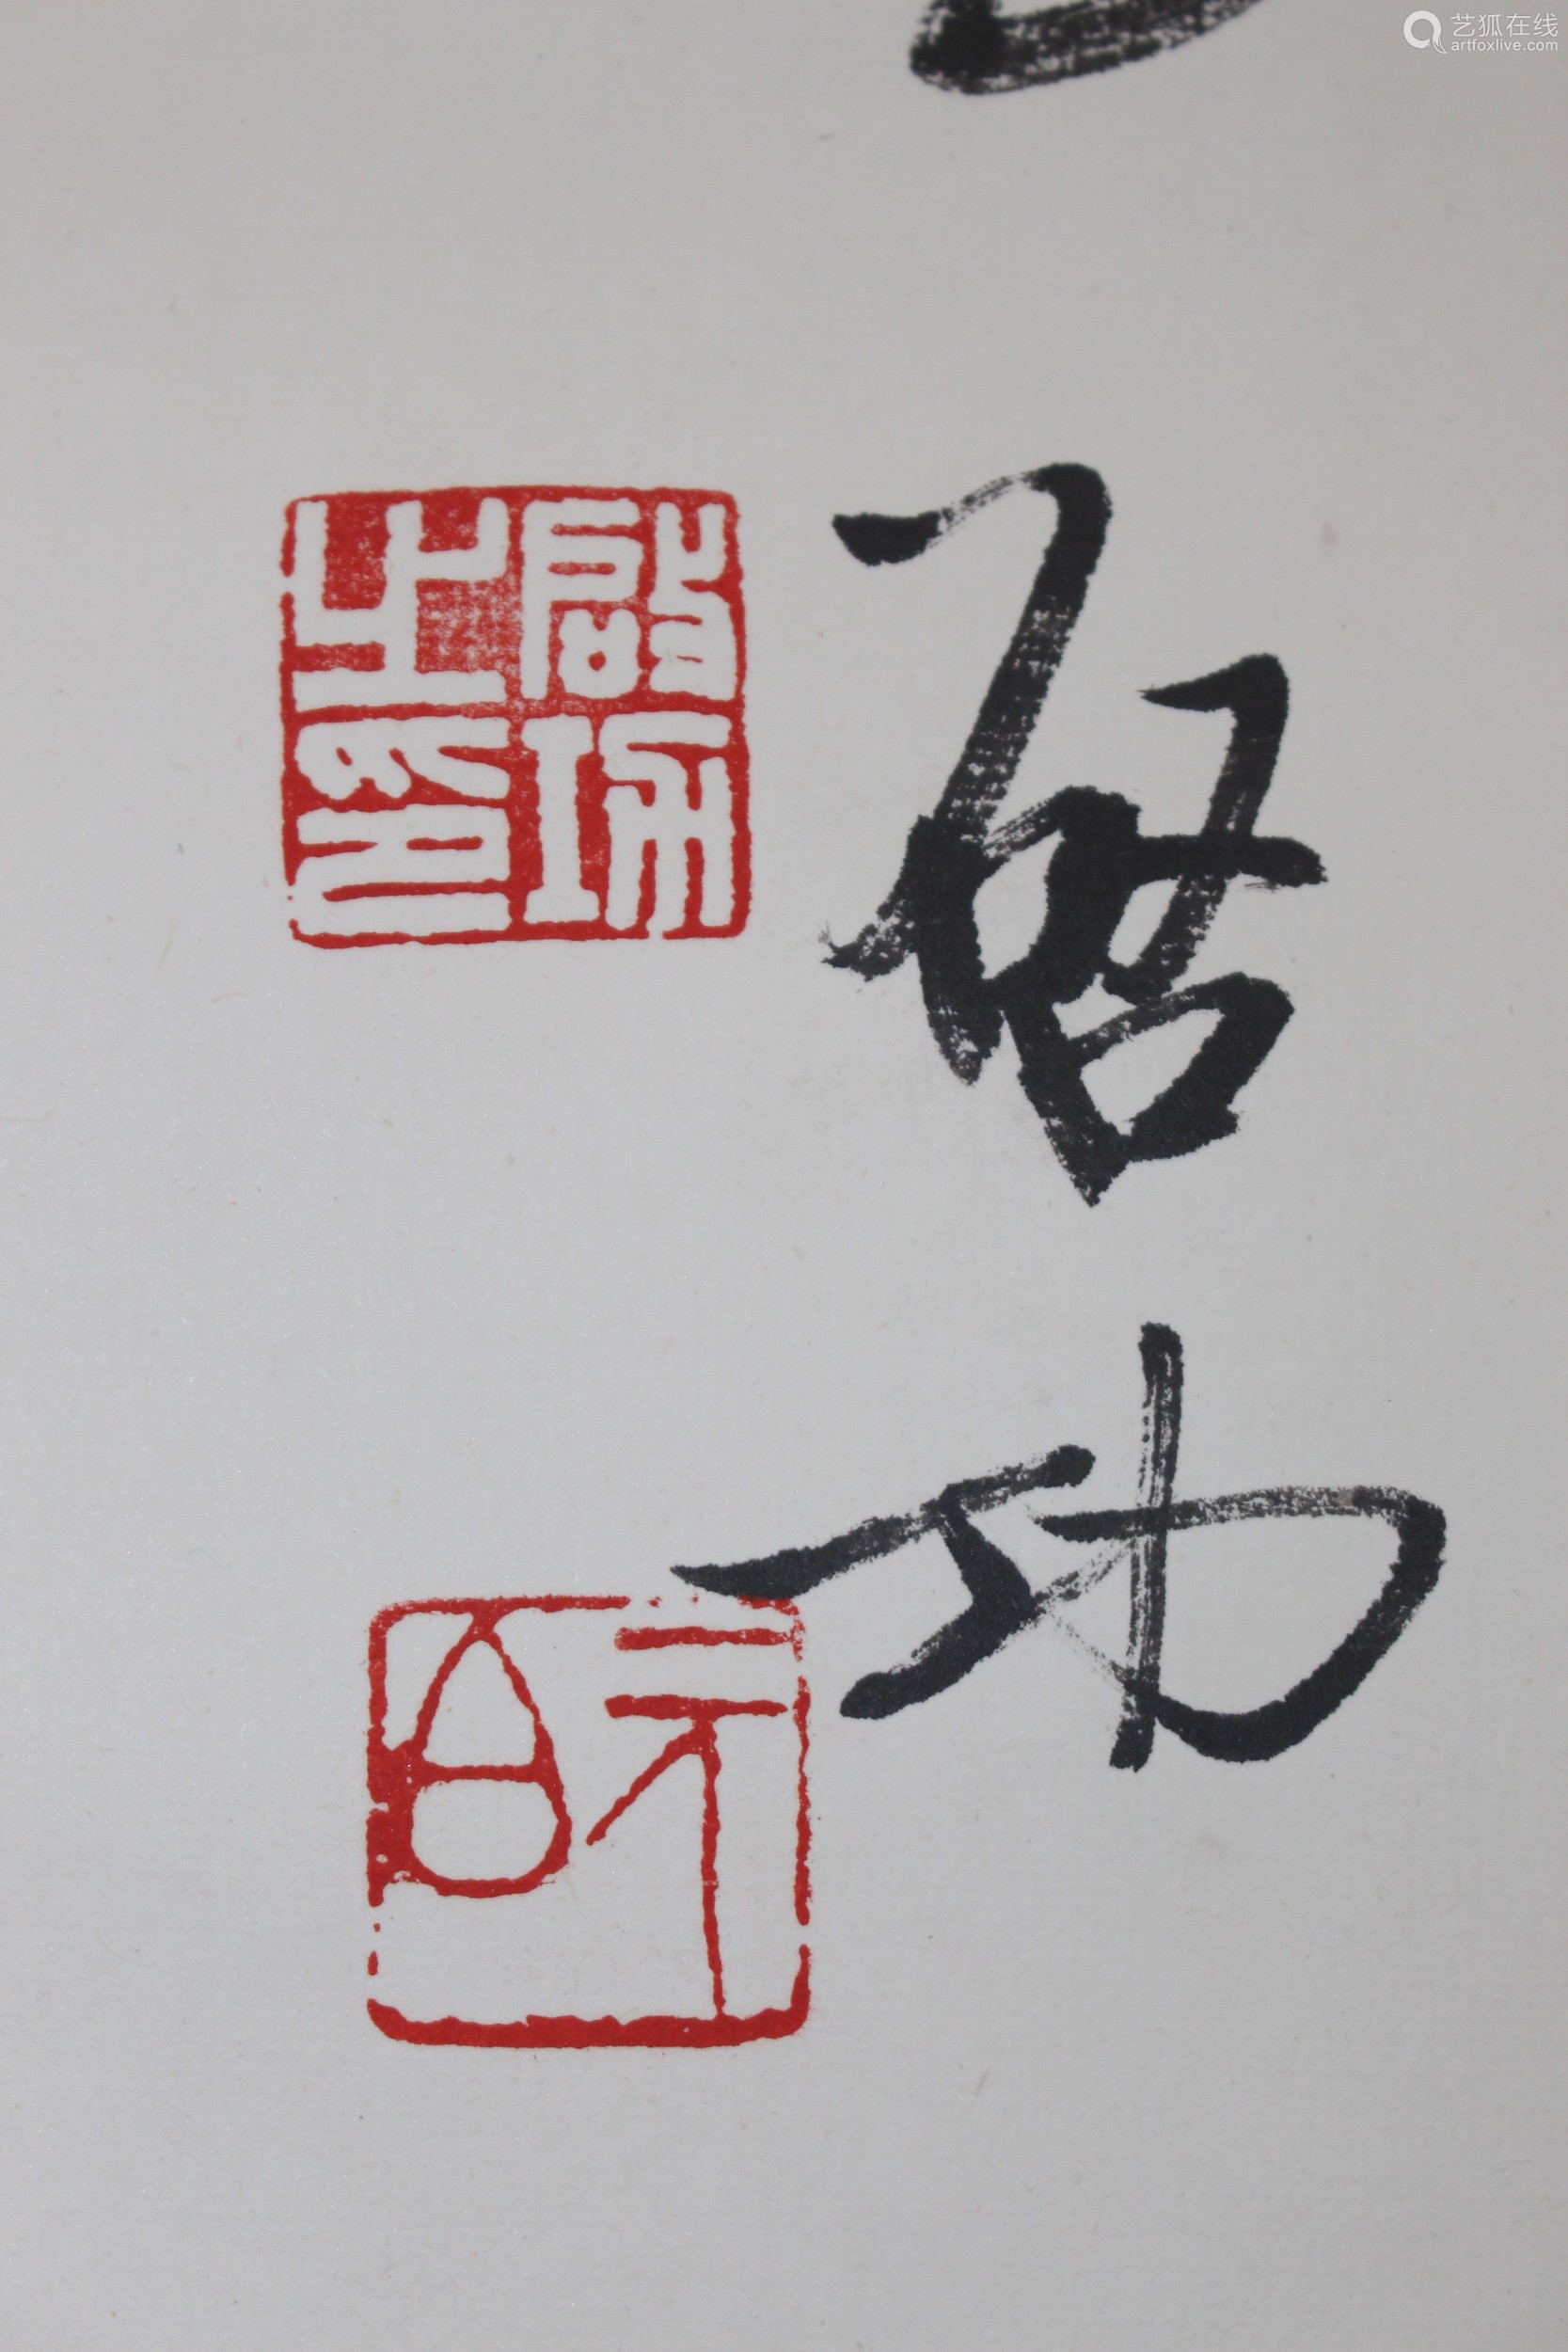 艺狐在线
artfoxlive.com
启功
啟功
之印
元白